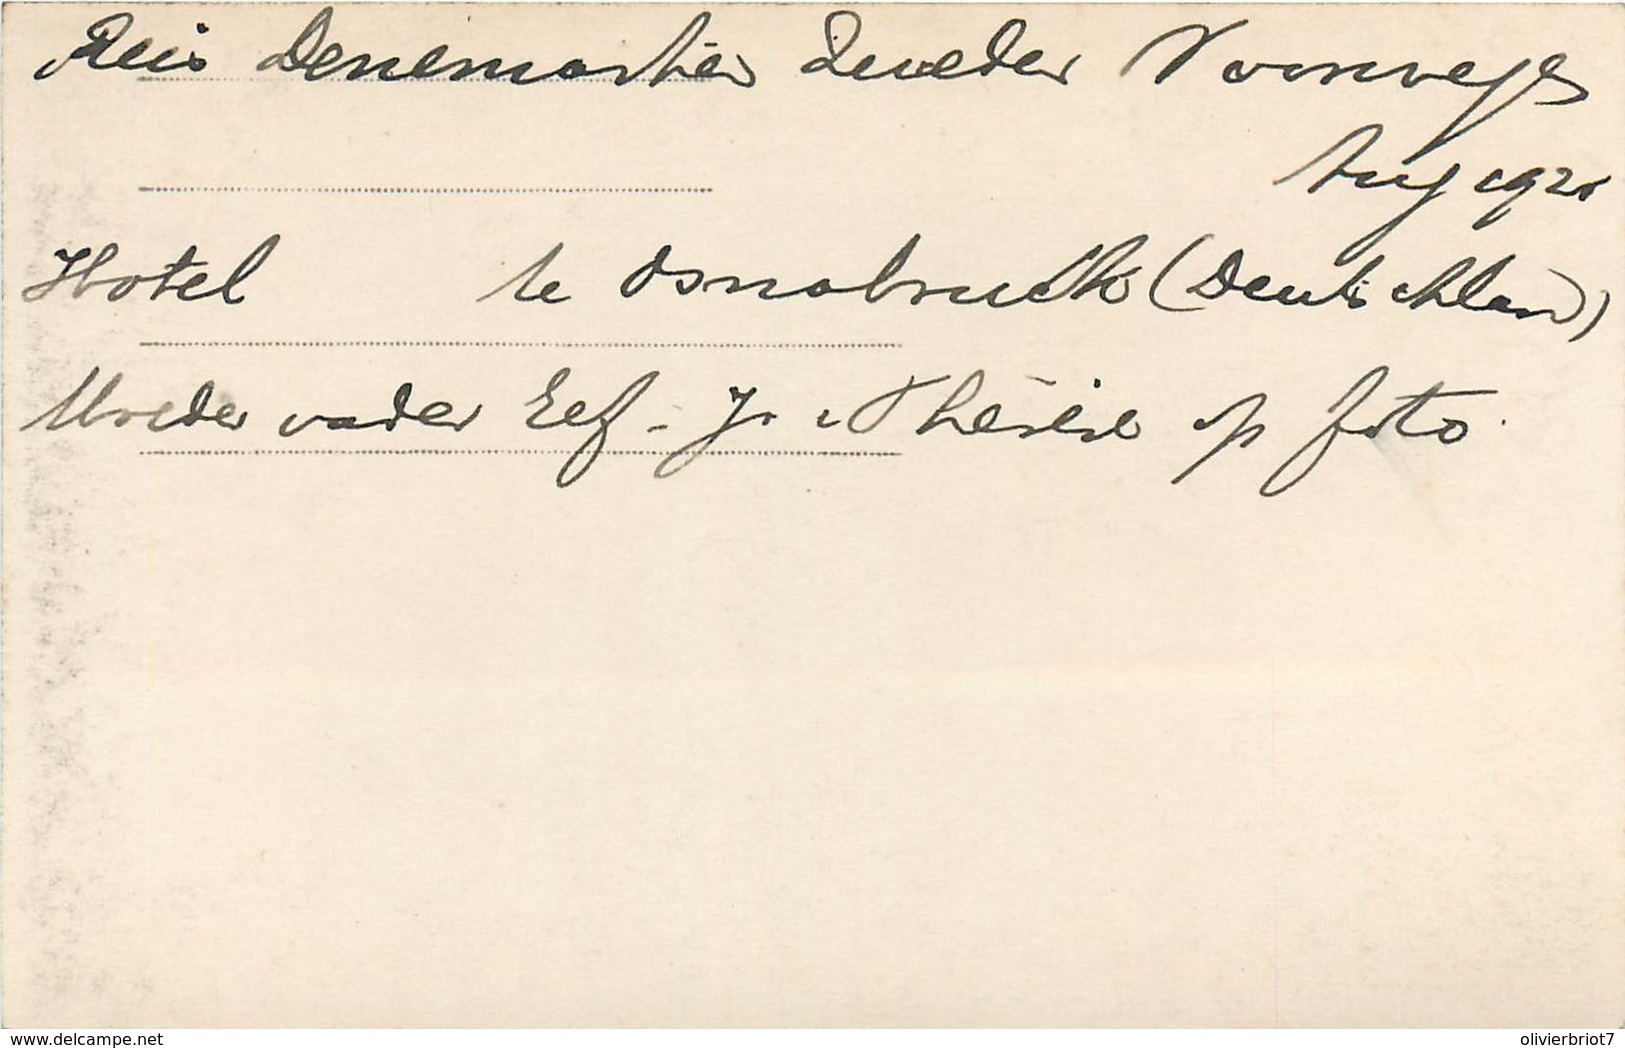 Reis Denemarken Zweden Noorwegen
Aug 192
Hotel te Osnabruck (Deutschland)
Moeder vader Eef - Jr Thérèse op foto.
delcampe.net
olivierbriot7